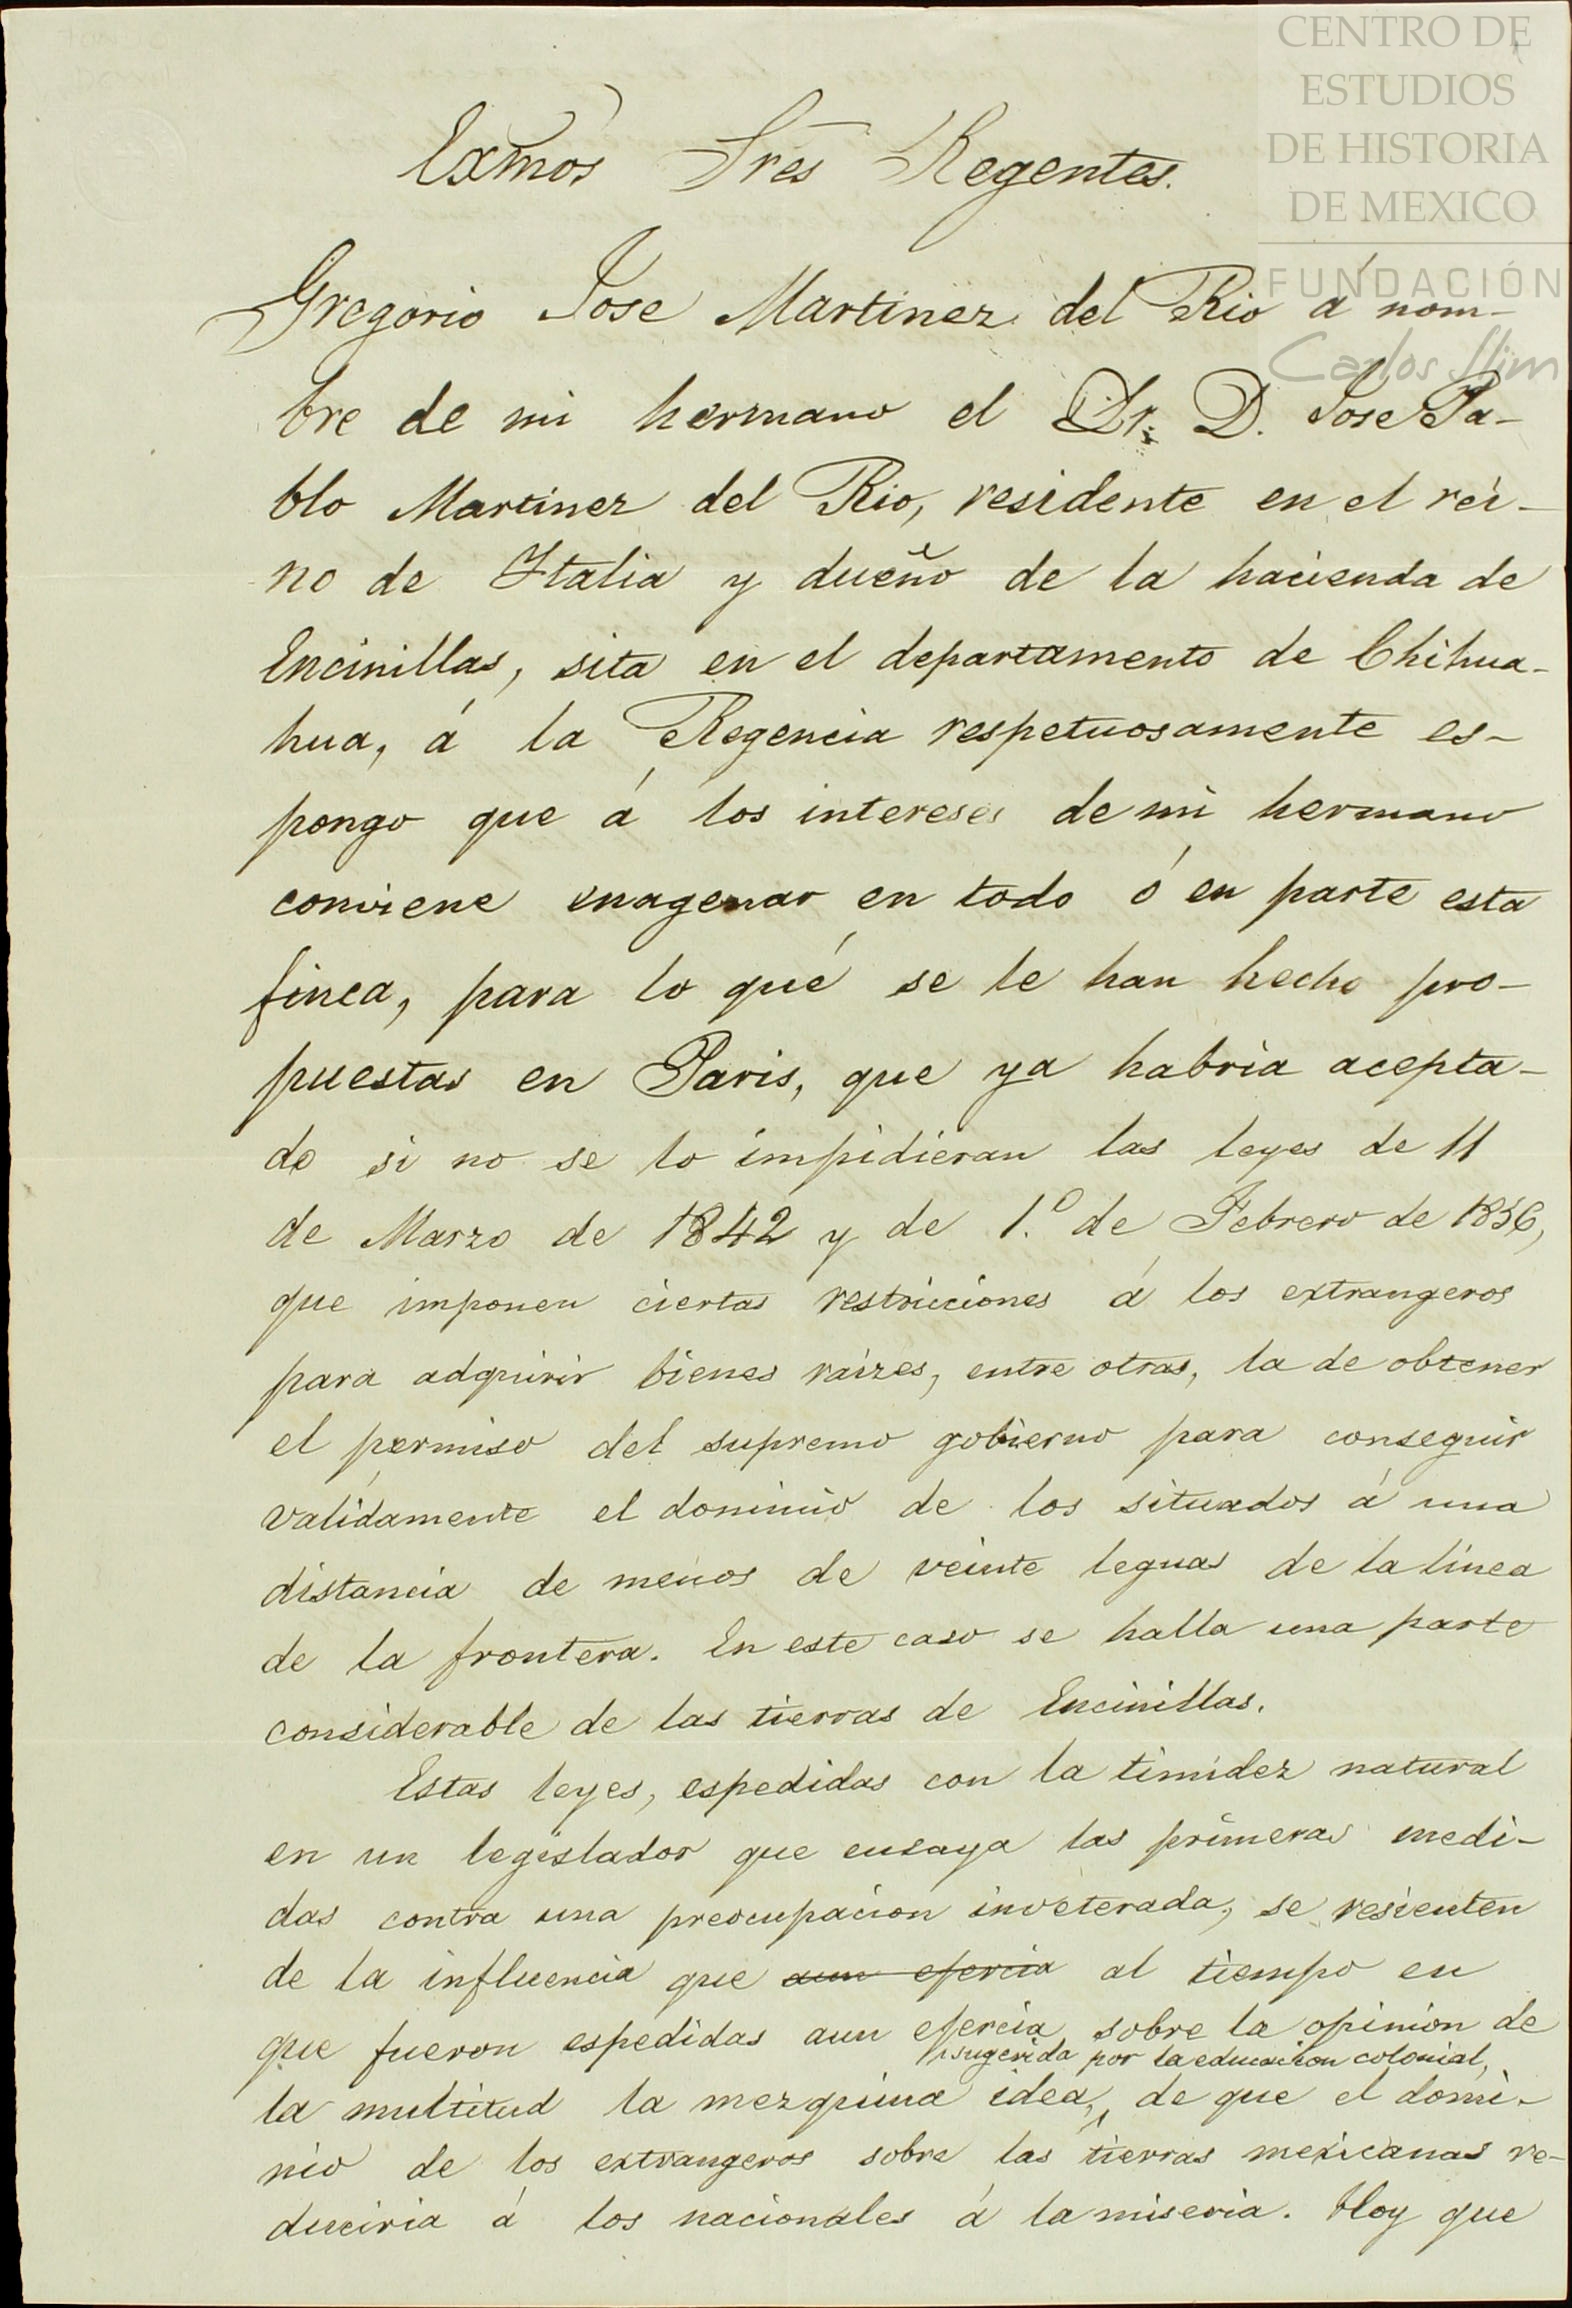 CENTRO DE
ESTUDIOS
DE HISTORIA
DE MEXICO
FUNDACIÓN
Carlos Slim
Exmos Sres Regentes.
Gregorio Jose Martinez del Rio á nom-
bre de mi hermano el Dr. D. Jose Pa-
blo Martinez del Rio, residente en el rei-
no de Italia y dueño de la hacienda de
Encinillas, sita en el departamento de Chihua-
hua, á la Regencia respetuosamente es-
pongo que á los intereses de mi hermano
conviene enagenar en todo ó en parte esta
finca, para lo qué se le han hecho pro-
puestas en Paris, que ya habria acepta-
do si no se lo impidieran las leyes de 11
de Marzo de 1842 y de 1.º de Febrero de 1856,
que imponen ciertas restricciones á los extrangeros
para adquirir bienes raizes, entre otras, la de obtener
el permiso del supremo gobierno para conseguir
validamente el dominio de los situados á una
distancia de menos de veinte leguas de la linea
de la frontera. En este caso se halla una parte
considerable de las tierras de Encinillas.
Estas leyes, espedidas con la timidez natural
en un legislador que ensaya las primeras medi-
das contra una preocupacion inveterada, se resienten
de la influencia que aun ejercia al tiempo en
que fueron espedidas aun ejercia, sobre la opinion de
sugerida por la educacion colonial,
la multitud la mezquina idea, de que el domi-
nio de los extrangeros sobre las tierras mexicanas re-
duciria á los nacionales á la miseria. Hoy que